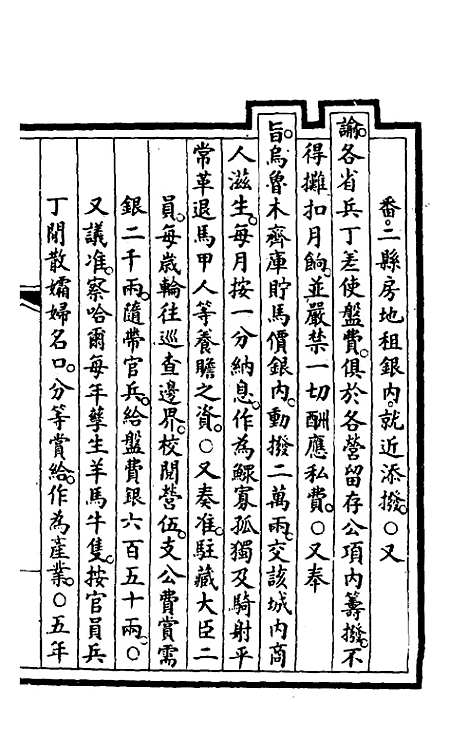 番。二縣房地租銀內。就近添撥。○又
諭。各省兵丁差使盤費。俱於各營留存公項內籌撥。不
得攤扣月餉。並嚴禁一切酬應私費。○又奉
旨。烏魯木齊庫貯馬價銀內。動撥二萬兩。交該城內商
人滋生。每月按一分納息。作為鰥寡孤獨及騎射平
常革退馬甲人等養贍之資。○又奏准。駐藏大臣二
員。每歲輪往巡查邊界。校閱營伍。支公費賞需
銀二千兩。隨帶官兵。給盤費銀六百五十兩。○
又議准。察哈爾每年孳生羊馬牛隻。按官員兵
丁閒散孀婦名口。分等賞給。作為產業。○五年